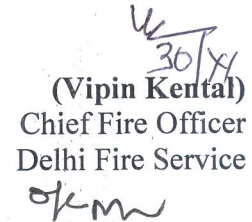 30/XI
(Vipin Kental)
Chief Fire Officer
Delhi Fire Service